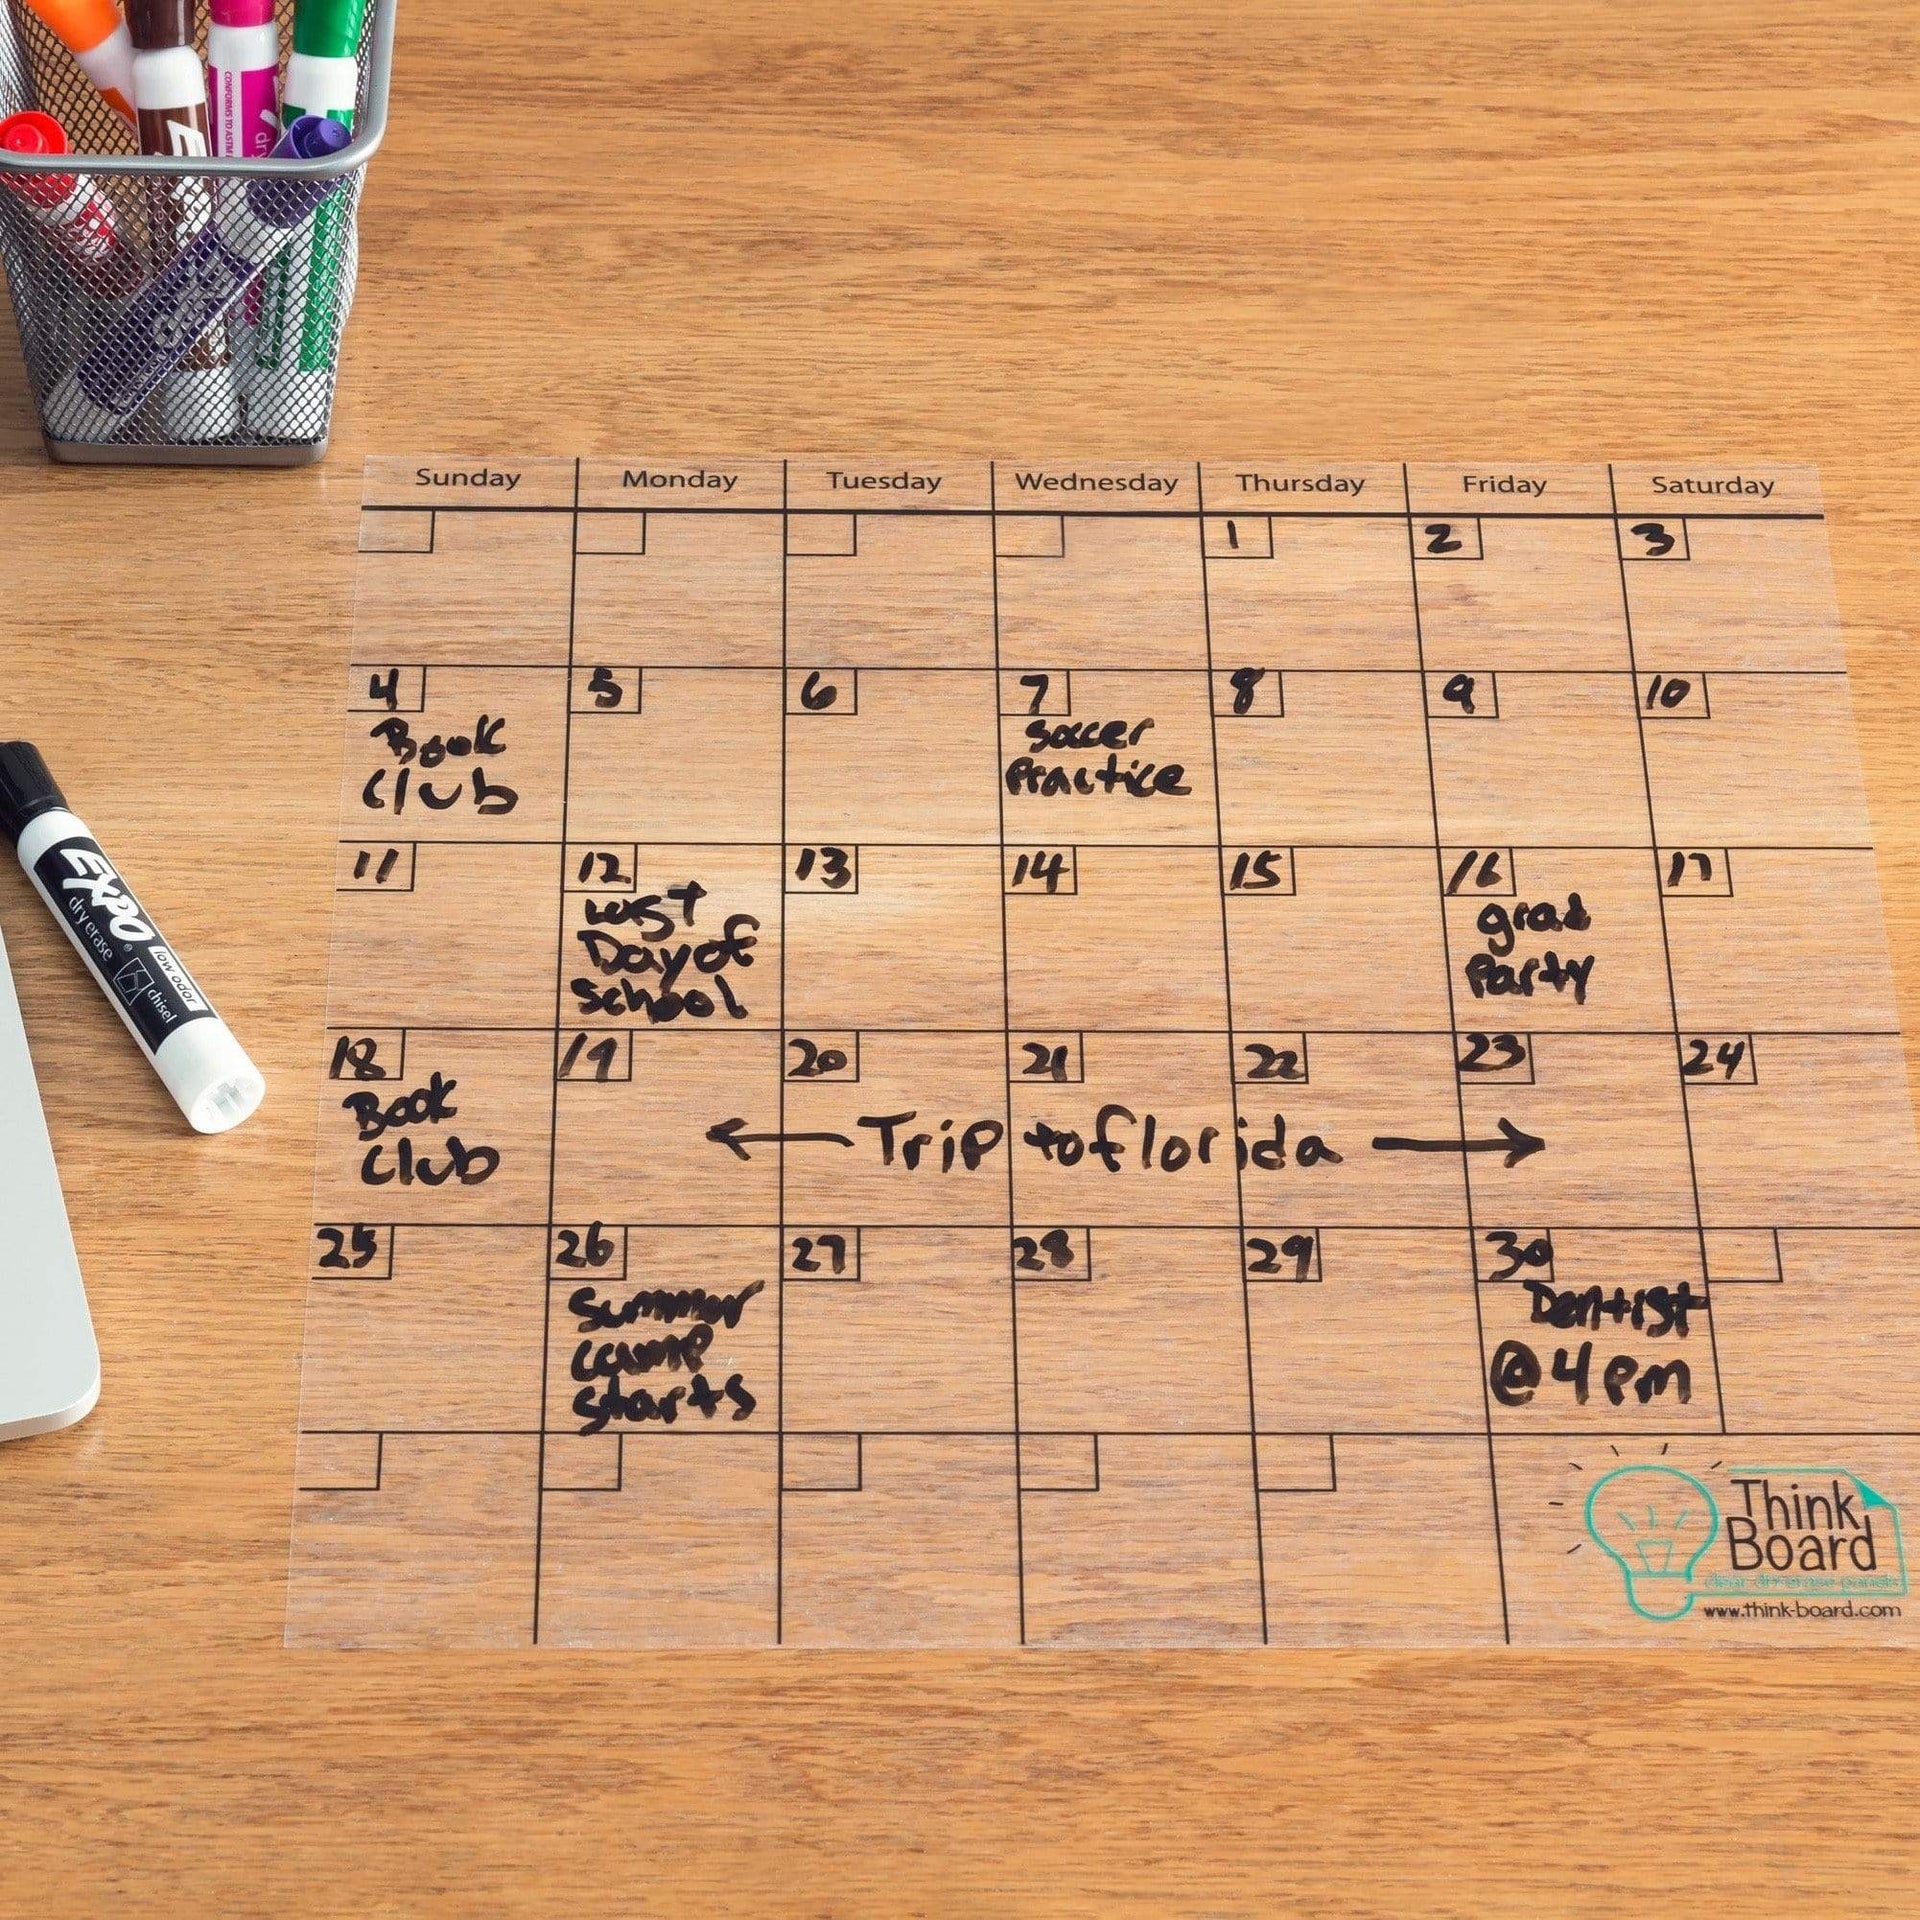 CONFORMS TO ASTM
Sunday Monday Tuesday Wednesday Thursday Friday Saturday
1 2 3
4 5 6 7 8 9 10
Book
Club
Soccer
Practice
11 12 13 14 15 16 17
Last
Day of
School
grad
Party
18 19 20 21 22 23 24
Book
Club
Trip to Florida
25 26 27 28 29 30
Summer
camp
starts
Dentist
@ 4 pm
EXPO®
dry erase
low odor
chisel
Think
Board
clear dry-erase panels
www.think-board.com